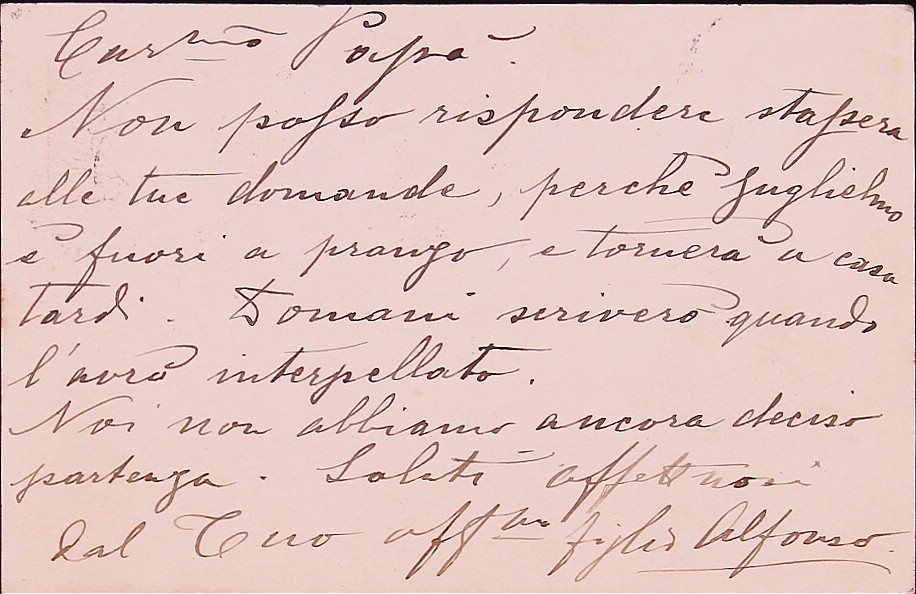 Carmo Papà.
Non posso rispondere stassera
alle tue domande, perchè Guglielmo
è fuori a pranzo, e tornerà a casa
tardi. Domani scriverò quando
l'avrò interpellato.
Noi non abbiamo ancora deciso
partenza. Saluti affettuosi
dal Tuo affmo figlio Alfonso.